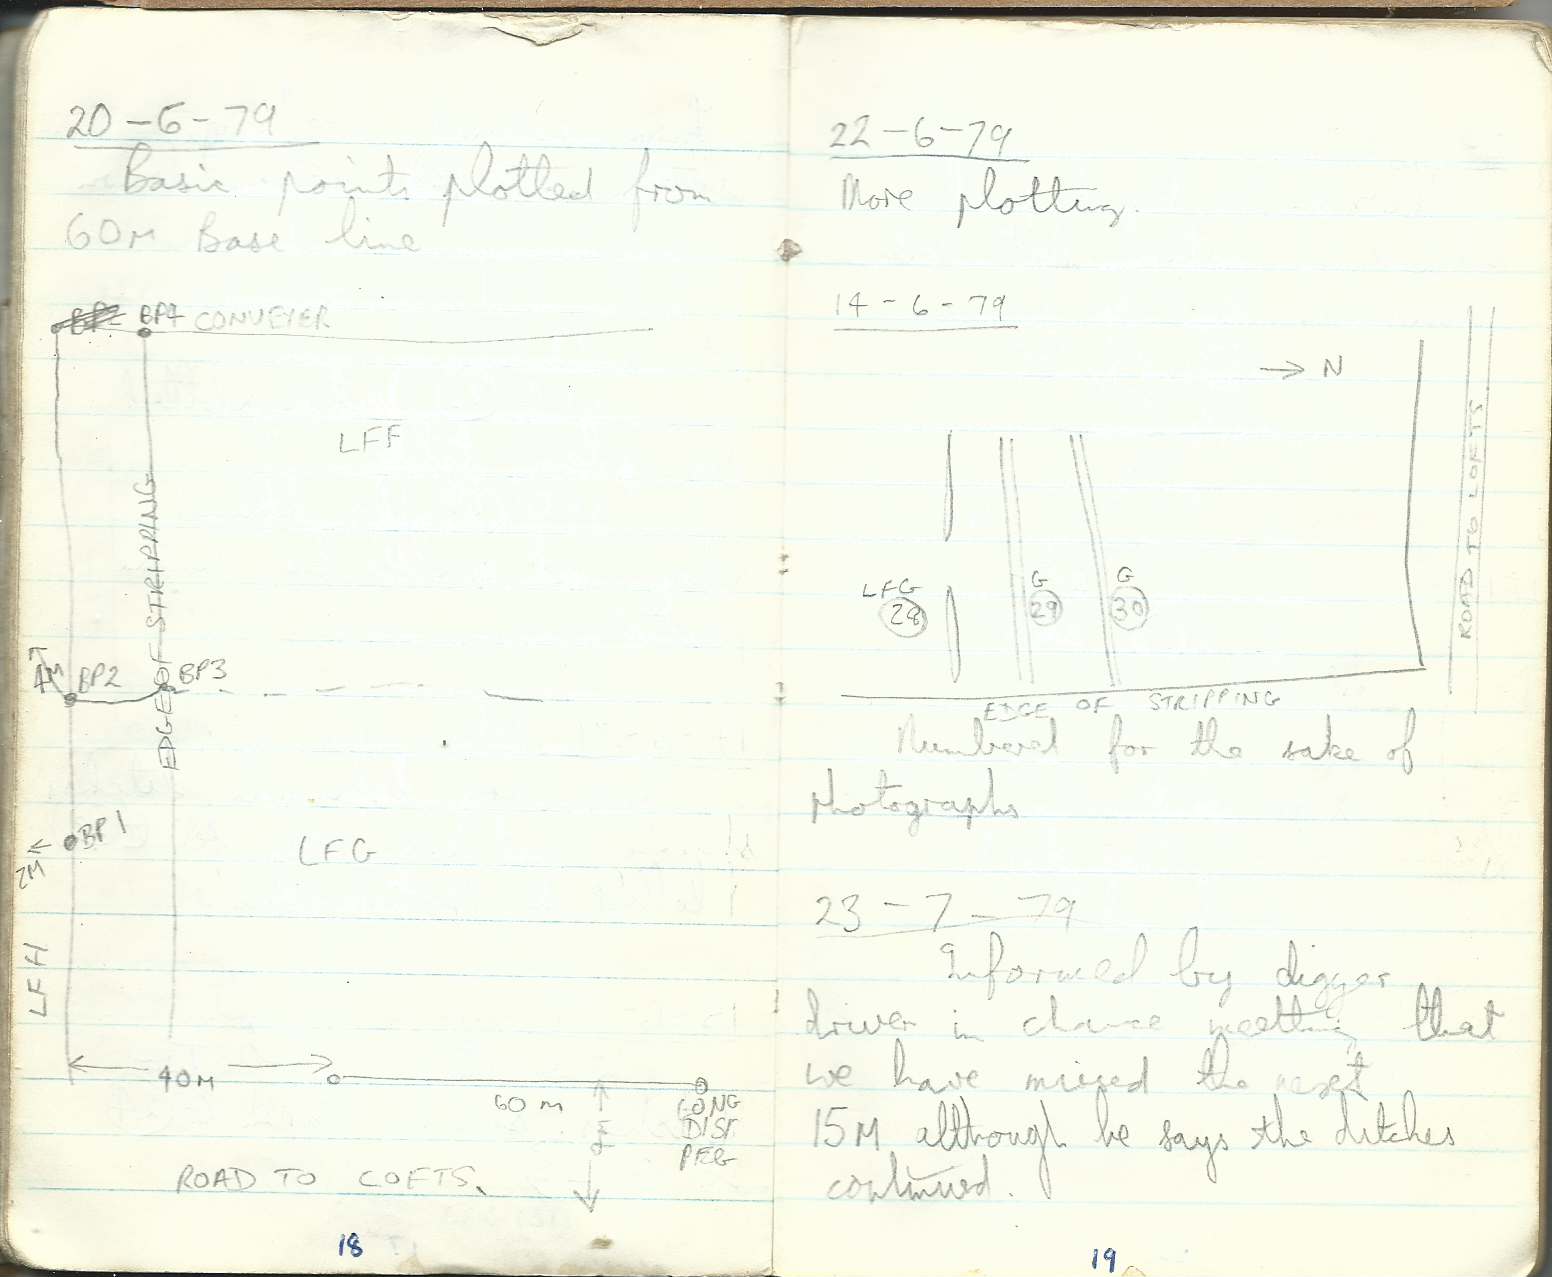 20-6-79
Basic points plotted from
60M Base line
BP4 CONVEYER
LFF
EDGE OF STRIPPING
4M
BP2
BP3
BP1
2M
LFG
LFH
40M
60 M
LONG
DIST
PEG
ROAD TO LOFTS.
18
22-6-79
More plotting.
14-6-79
→ N
ROAD TO LOFTS
LFG
28
G
29
G
30
EDGE OF STRIPPING
Numbered for the sake of
photographs
23-7-79
Informed by digger
driver in chance meeting that
we have missed the next
15M although he says the ditches
continued.
19